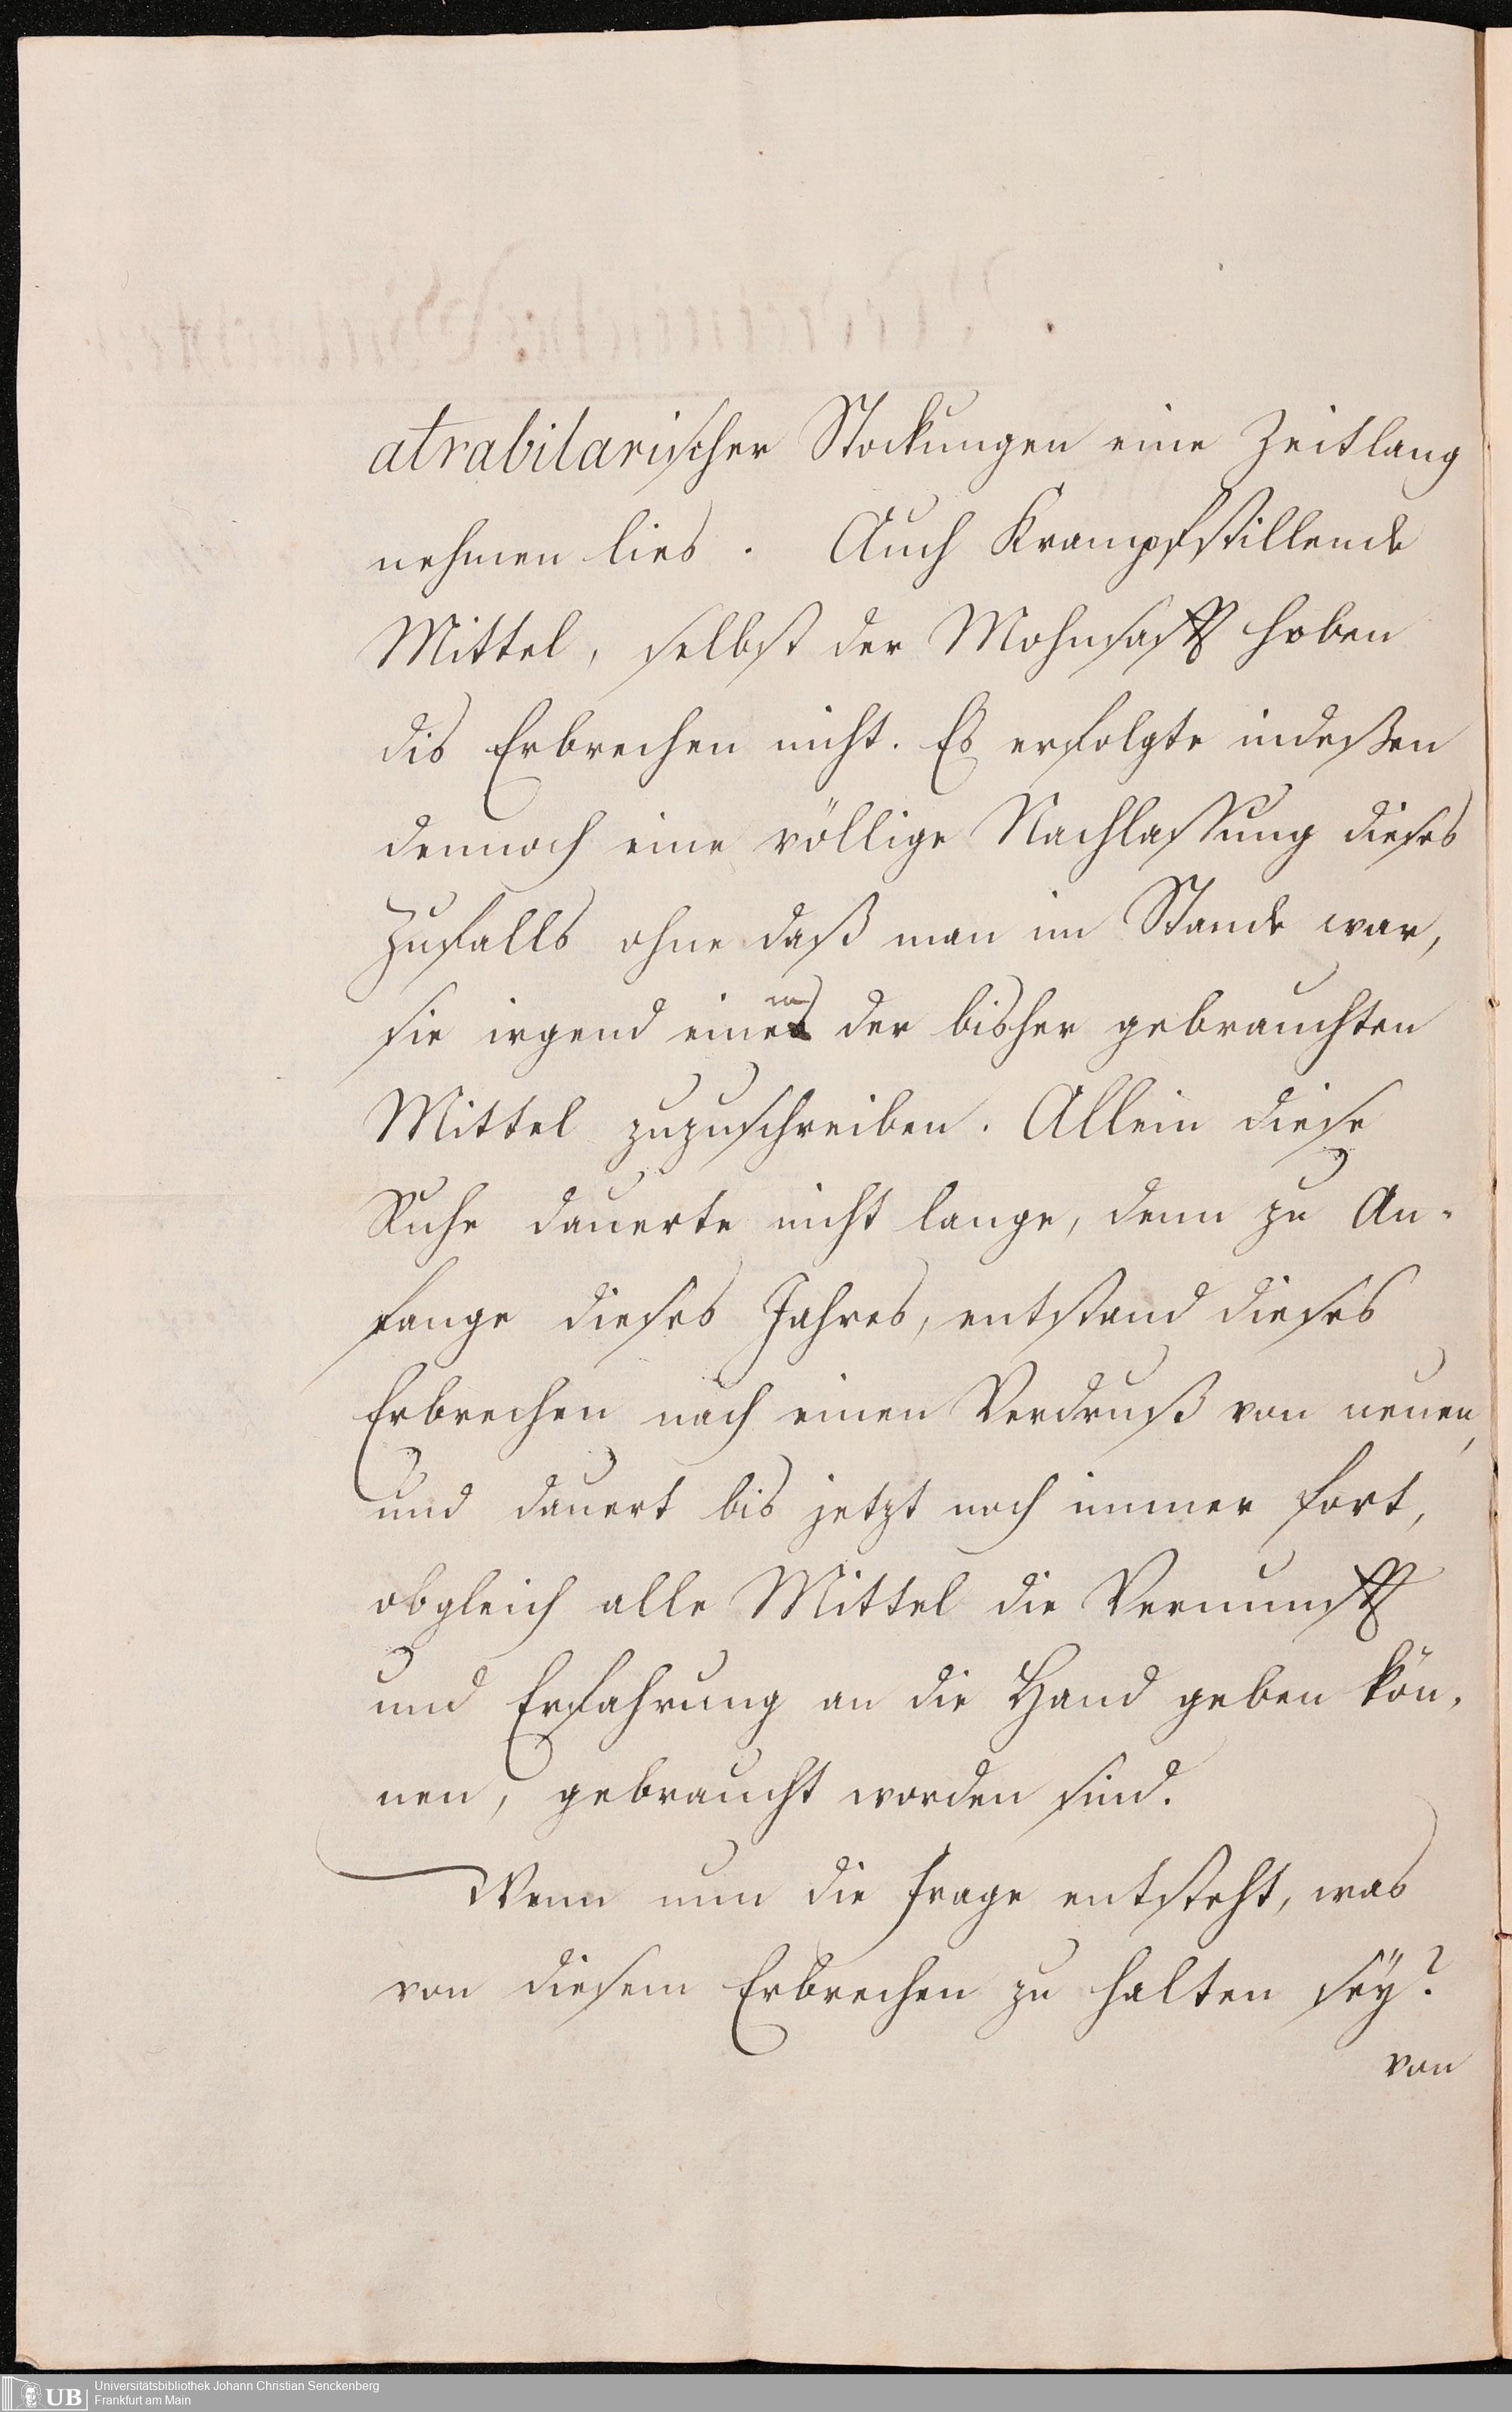 atrabilarischer Stockungen eine Zeitlang
nehmen lies. Auch Krampfstillende
Mittel, selbst der Mohnsaft hoben
dis Erbrechen nicht. Es erfolgte indeßen
dennoch eine völlige Nachlassung dieses
Zufalls ohne daß man im Stande war,
sie irgend einem der bisher gebrauchten
Mittel zuzuschreiben. Allein diese
Ruhe dauerte nicht lange, denn zu An-
fange dieses Jahres, entstand dieses
Erbrechen nach einen Verdruß von neuen,
und dauert bis jetzt noch immer fort,
obgleich alle Mittel die Vernunft
und Erfahrung an die Hand geben kön-
nen, gebraucht worden sind.
Wenn nun die Frage entsteht, was
von diesem Erbrechen zu halten seÿ?
von
UB
Universitätsbibliothek Johann Christian Senckenberg
Frankfurt am Main